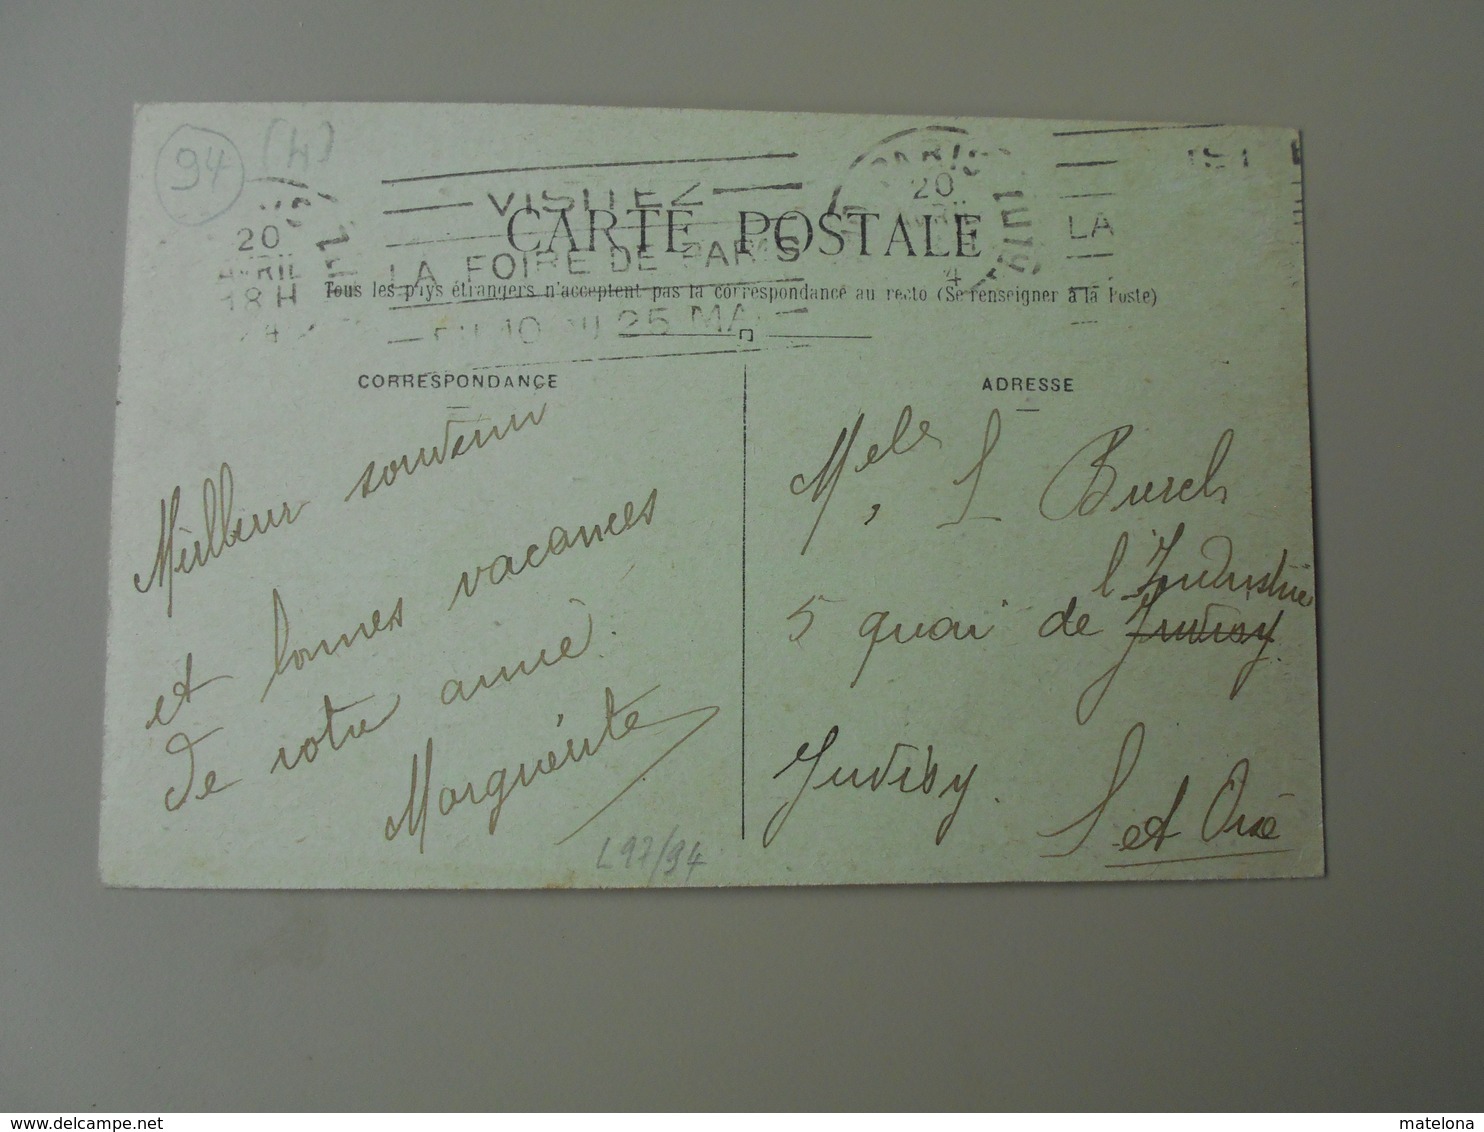 94
(4)
20
AVRIL
18H
VISITEZ
LA FOIRE DE PARIS
DU 10 AU 25 MAI
PARIS
20
LA
CARTE POSTALE
Tous les pays étrangers n'acceptent pas la correspondance au recto (Se renseigner à la Poste)
CORRESPONDANCE
ADRESSE
Meilleur souvenir
et bonnes vacances
de votre amie.
Marguerite
L97/94
Melle, L Burch
l'Industrie
5 quai de Juvisy.
Juvisy.
S et Oise
delcampe.net
matelona